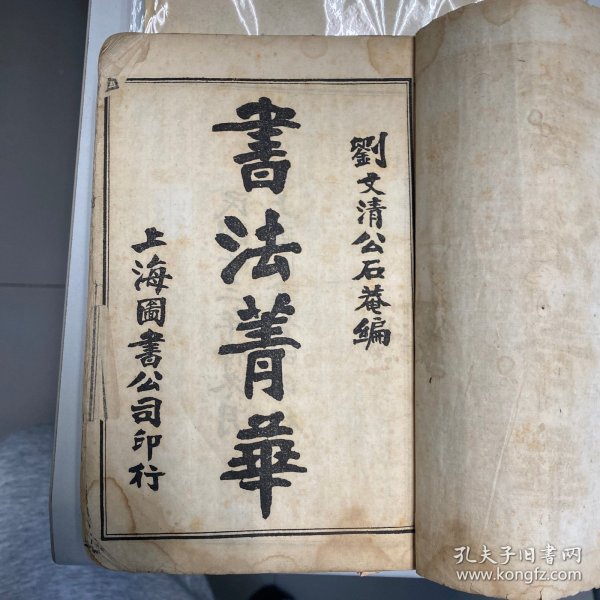 劉文清公石菴編
書法菁華
上海圖書公司印行
孔夫子旧书网
www.kongfz.com